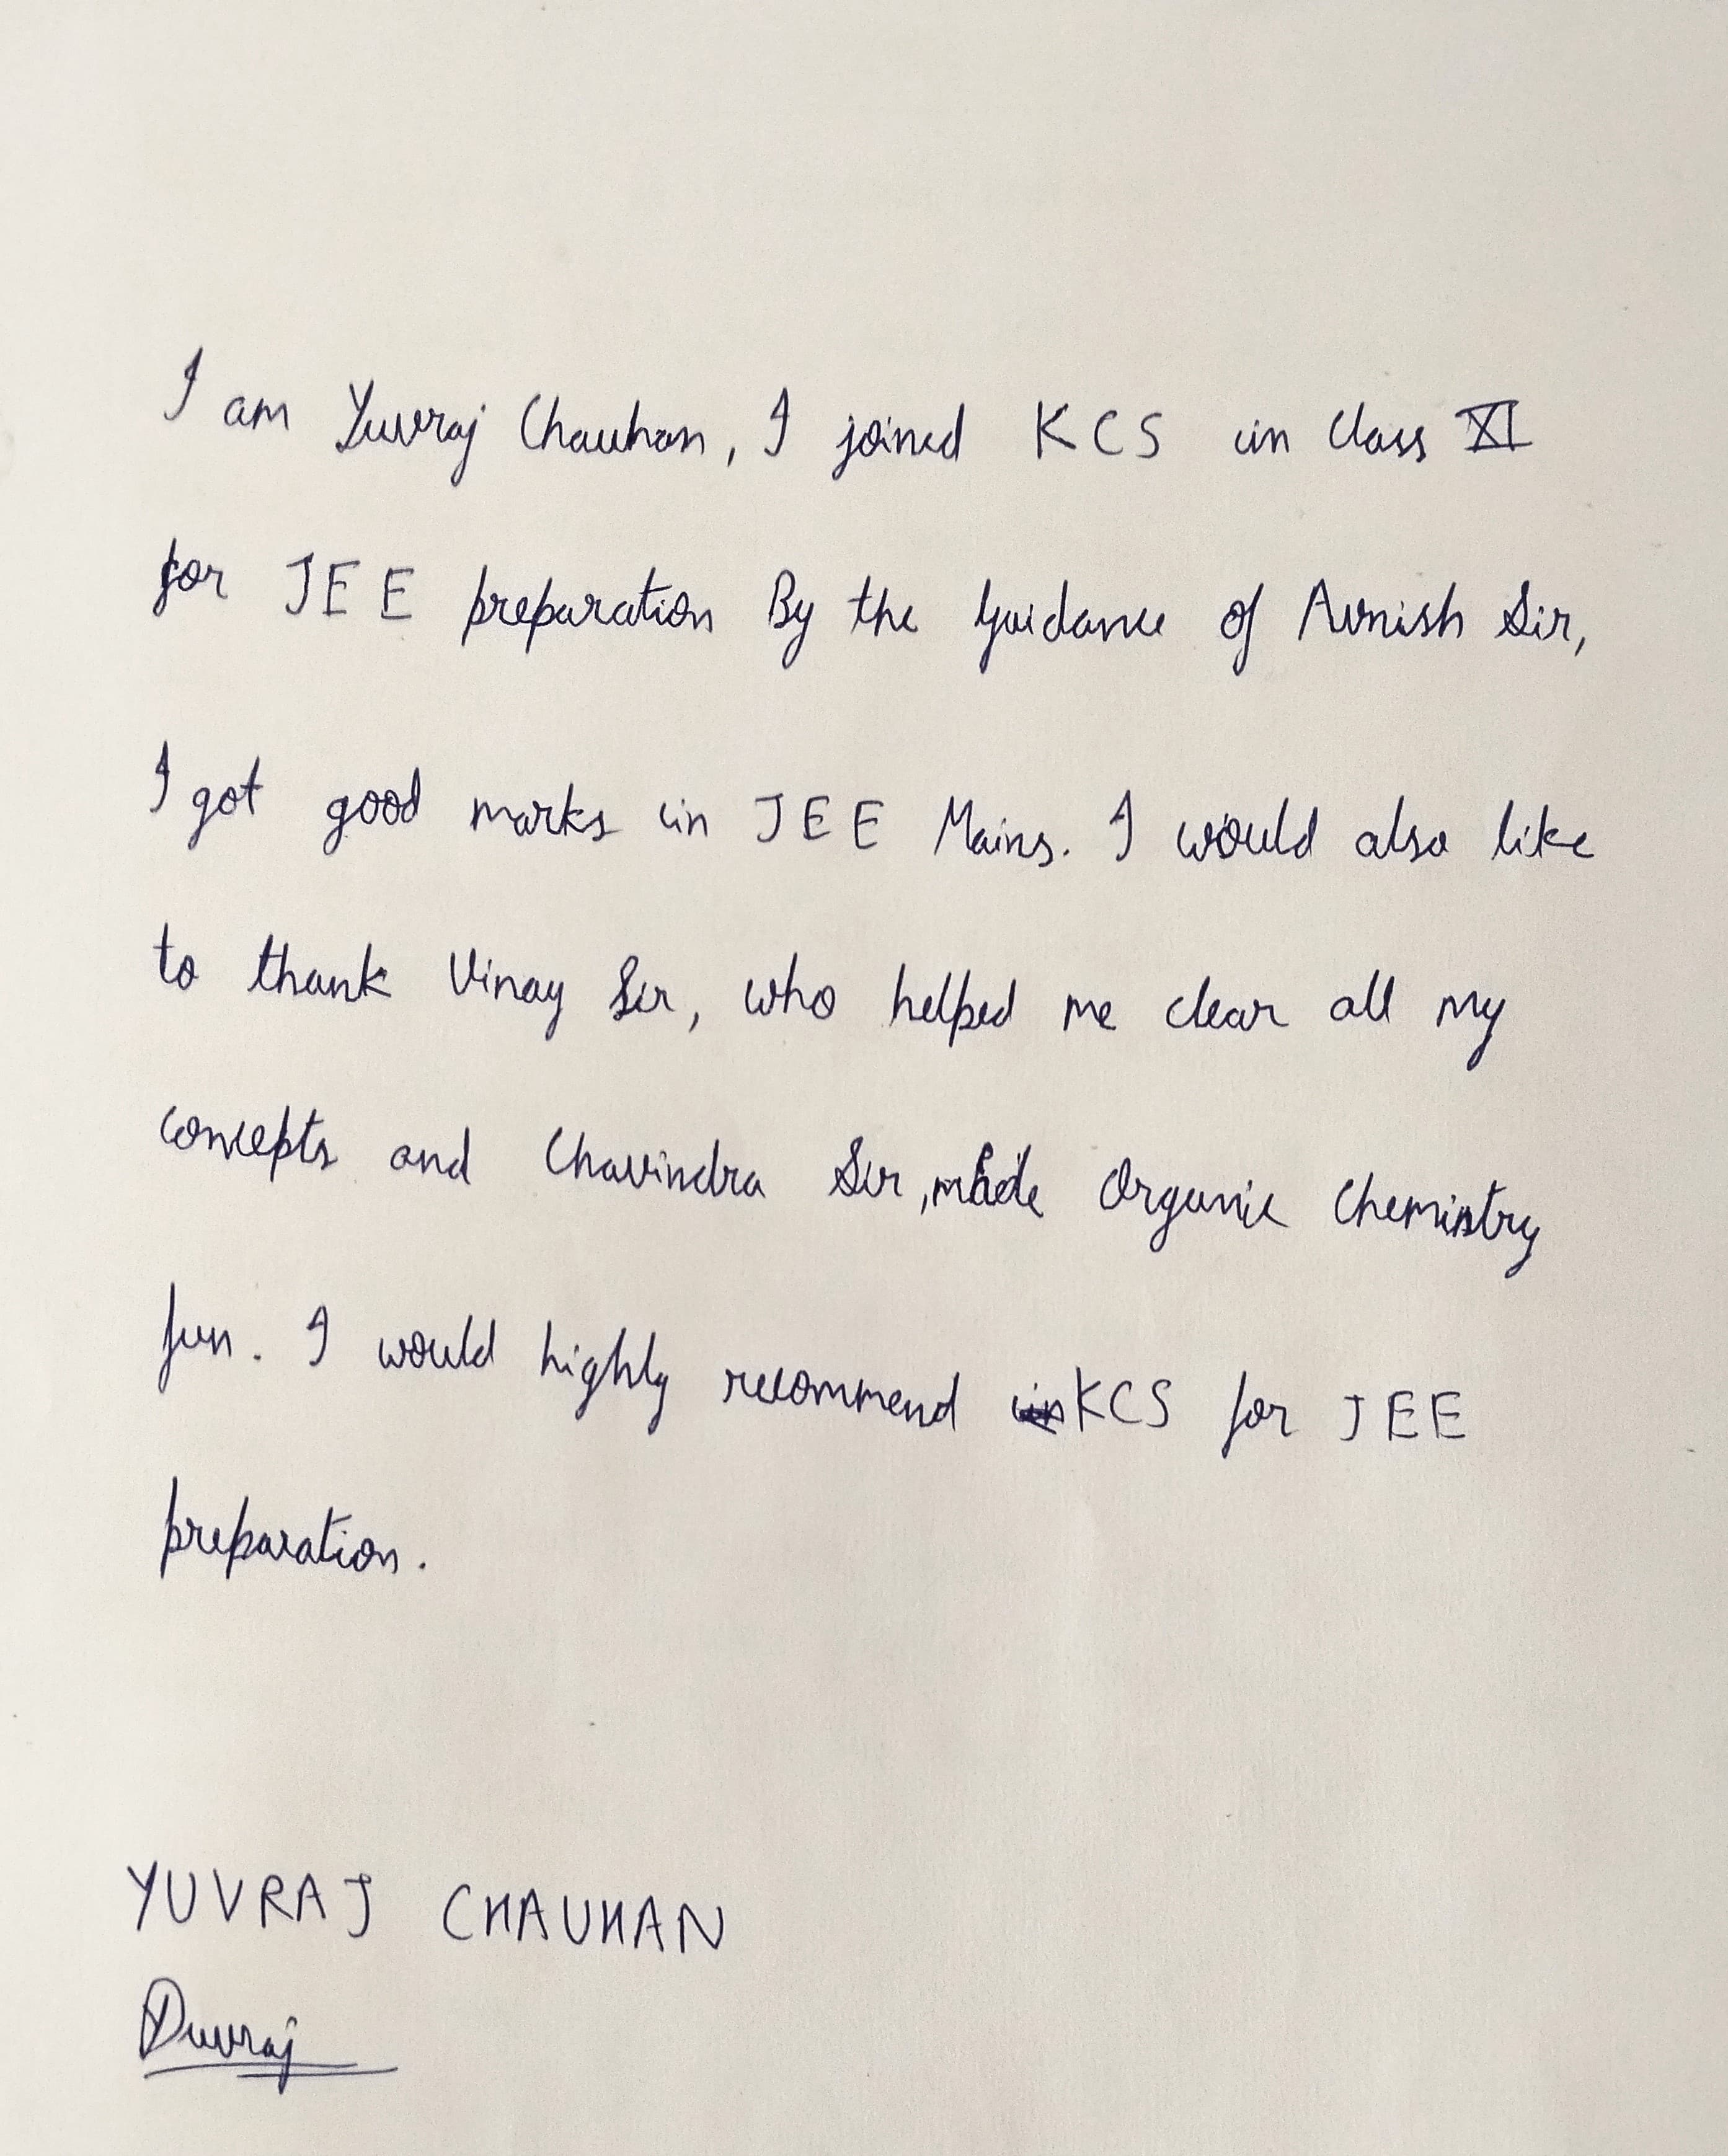 I am Yuvraj Chauhan, I joined KCS in Class XI
for JEE preparation By the Guidance of Avnish Sir,
I got good marks in JEE Mains. I would also like
to thank Vinay Sir, who helped me clear all my
concepts and Chavindra Sir, made Organic Chemistry
fun. I would highly recommend KCS for JEE
preparation.
YUVRAJ CHAUHAN
Yuvraj